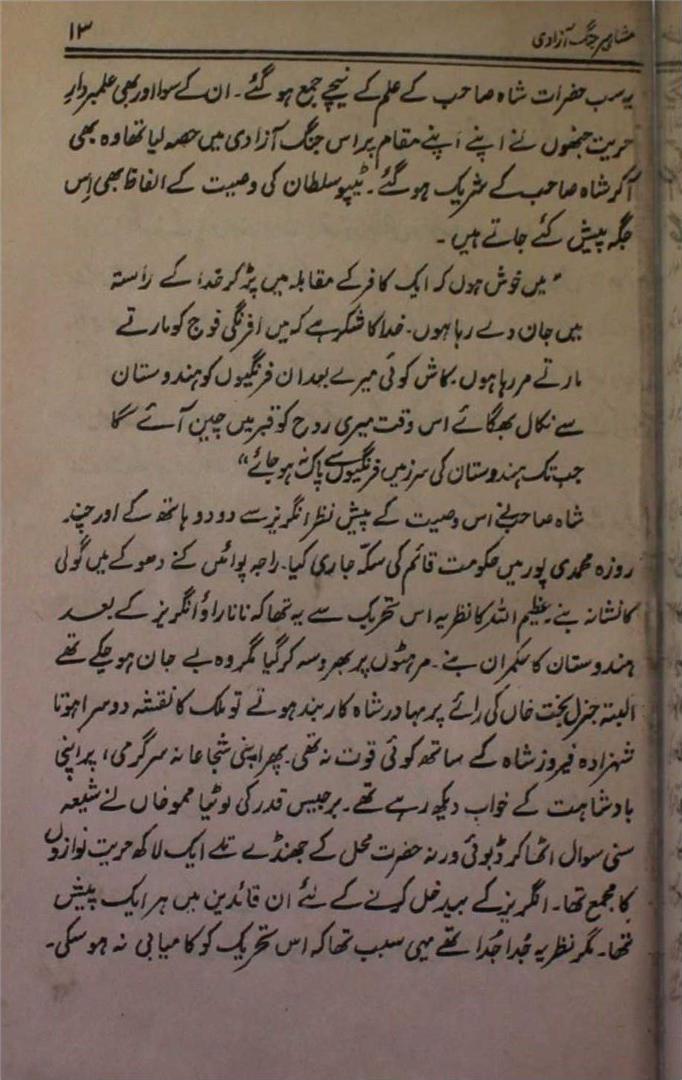 مشاہیر جنگ آزادی
۱۳
یہ سب حضرات شاہ صاحب کے علم کے نیچے جمع ہو گئے۔ ان کے سوا اور بھی علمبردارِ
حریت جنھوں نے اپنے اپنے مقام پر اس جنگ آزادی میں حصہ لیا تھا وہ بھی
آکر شاہ صاحب کے شریک ہو گئے۔ ٹیپو سلطان کی وصیت کے الفاظ بھی اِس
جگہ پیش کئے جاتے ہیں۔
"میں خوش ہوں کہ ایک کافر کے مقابلہ میں پڑ کر خدا کے راستہ
میں جان دے رہا ہوں۔ خدا کا شکر ہے کہ میں افرنگی فوج کو مارتے
مارتے مر رہا ہوں۔ کاش کوئی میرے بعد ان فرنگیوں کو ہندوستان
سے نکال بھگائے اس وقت میری روح کو قبر میں چین آئے گا
جب تک ہندوستان کی سرزمیں فرنگیوں سے پاک نہ ہو جائے"
شاہ صاحب نے اس وصیت کے پیش نظر انگریز سے دو دو ہاتھ کے اور چند
روزہ محمدی پور میں حکومت قائم کی سکّہ جاری کیا۔ راجہ پوائیں کے دھوکے میں گولی
کا نشانہ بنے۔ عظیم اللہ کا نظریہ اس تحریک سے یہ تھا کہ نانا راؤ انگریز کے بعد
ہندوستان کا حکمران بنے۔ مرہٹوں پر بھروسہ کر گیا مگر وہ بے جان ہو چکے تھے
البتہ جنرل بخت خاں کی رائے پر بہادر شاہ کاربند ہوتے تو ملک کا نقشہ دوسرا ہوتا
شہزادہ فیروز شاہ کے ساتھ کوئی قوت نہ تھی۔ پھر اپنی شجاعانہ سرگرمی، پر اپنی
بادشاہت کے خواب دیکھ رہے تھے۔ برجیس قدر کی لوٹیا مموخاں نے شیعہ
سنی سوال اٹھا کر ڈبوئی ورنہ حضرت محل کے جھنڈے تلے ایک لاکھ حریت نوازوں
کا مجمع تھا۔ انگریز کے بیدخل کرنے کے لئے ان قائدین میں ہر ایک پیش
تھا۔ مگر نظریہ جُدا جُدا تھے یہی سبب تھا کہ اس تحریک کو کامیابی نہ ہو سکی۔